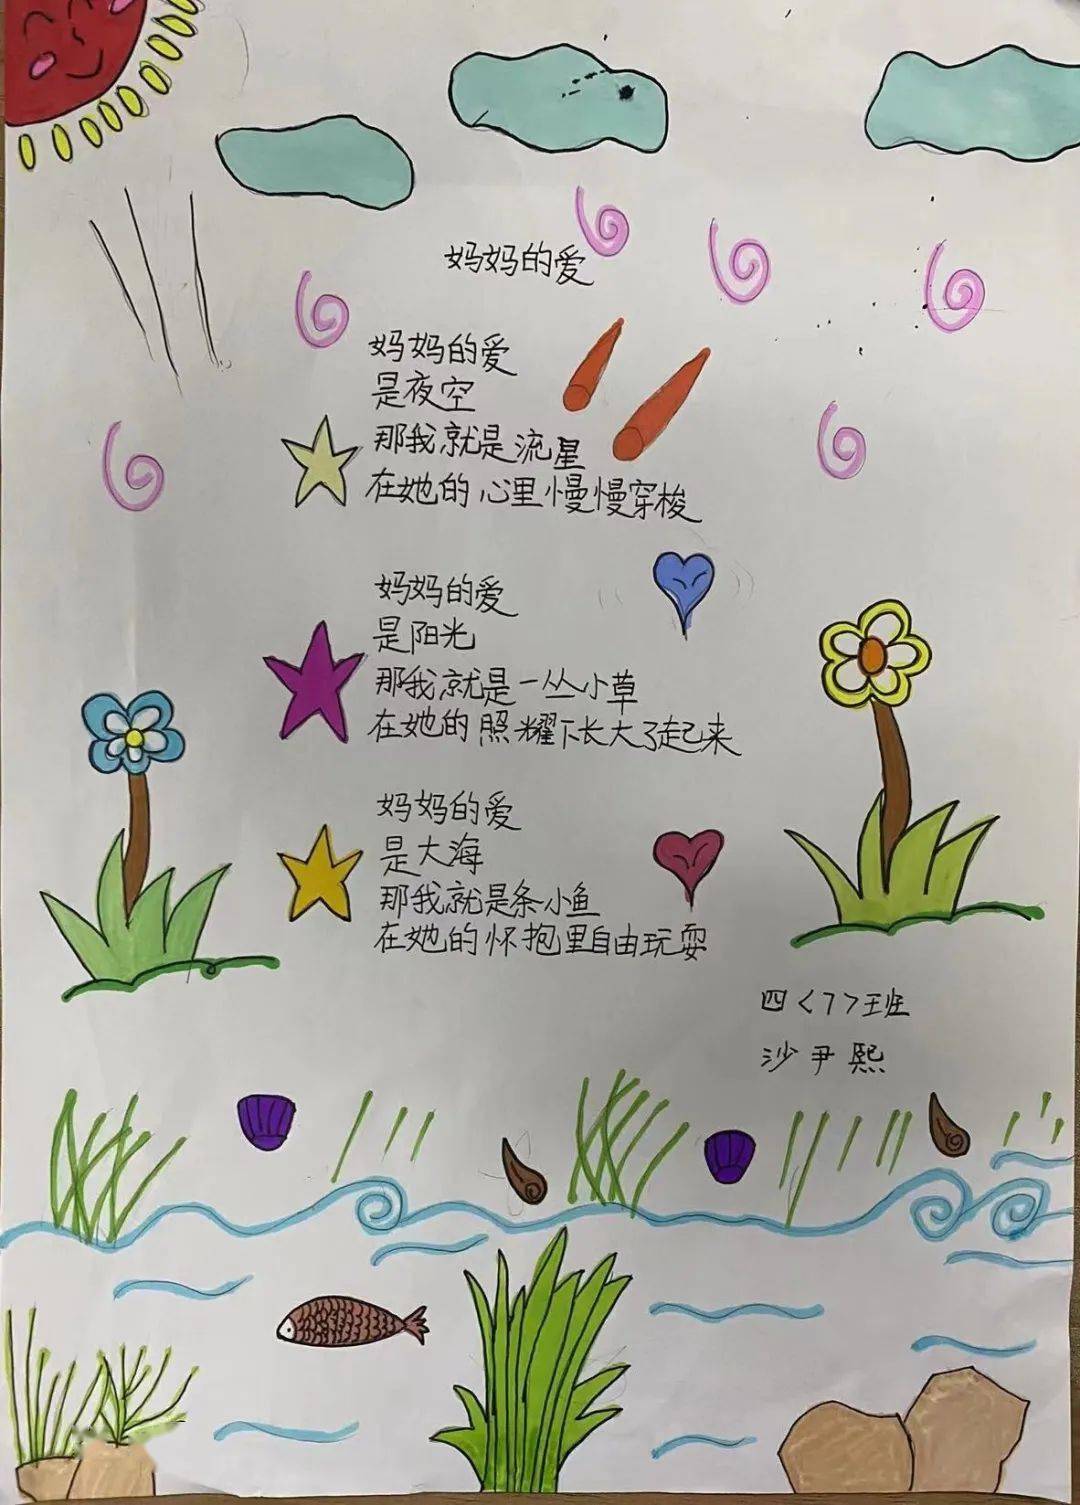 妈妈的爱
妈妈的爱
是夜空
那我就是流星
在她的心里慢慢穿梭
妈妈的爱
是阳光
那我就是一丛小草
在她的照耀下长大了起来
妈妈的爱
是大海
那我就是条小鱼
在她的怀抱里自由玩耍
四<7>班
沙尹熙